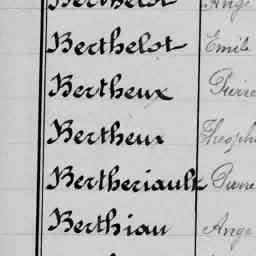 Berthelot Ange
Berthelot Emile
Bertheux Pierre
Bertheux Théoph
Bertheriault Pierre
Berthiau Ange